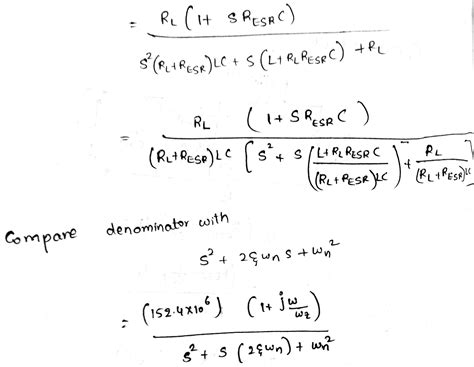 = R_L (1 + S R_ESR C) / S²(R_L+R_ESR)LC + S(L+R_L R_ESR C) + R_L
= R_L (1 + S R_ESR C) / (R_L+R_ESR)LC [S² + S(L+R_L R_ESR C / (R_L+R_ESR)LC) + R_L / (R_L+R_ESR)LC]
Compare denominator with
S² + 2ξωn S + ωn²
= (152.4×10⁶) (1 + jω/ωz) / S² + S(2ξωn) + ωn²